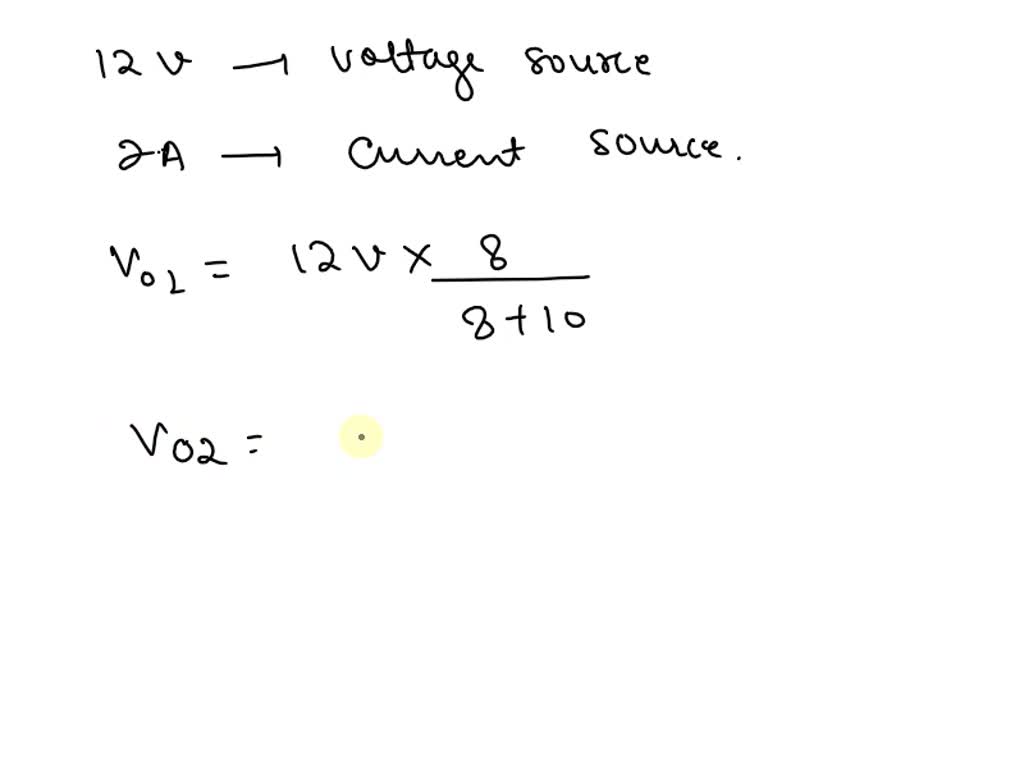 12 v → voltage source
2A → Current source.
Vo1 = 12 v × 8
8 + 10
Vo2 =